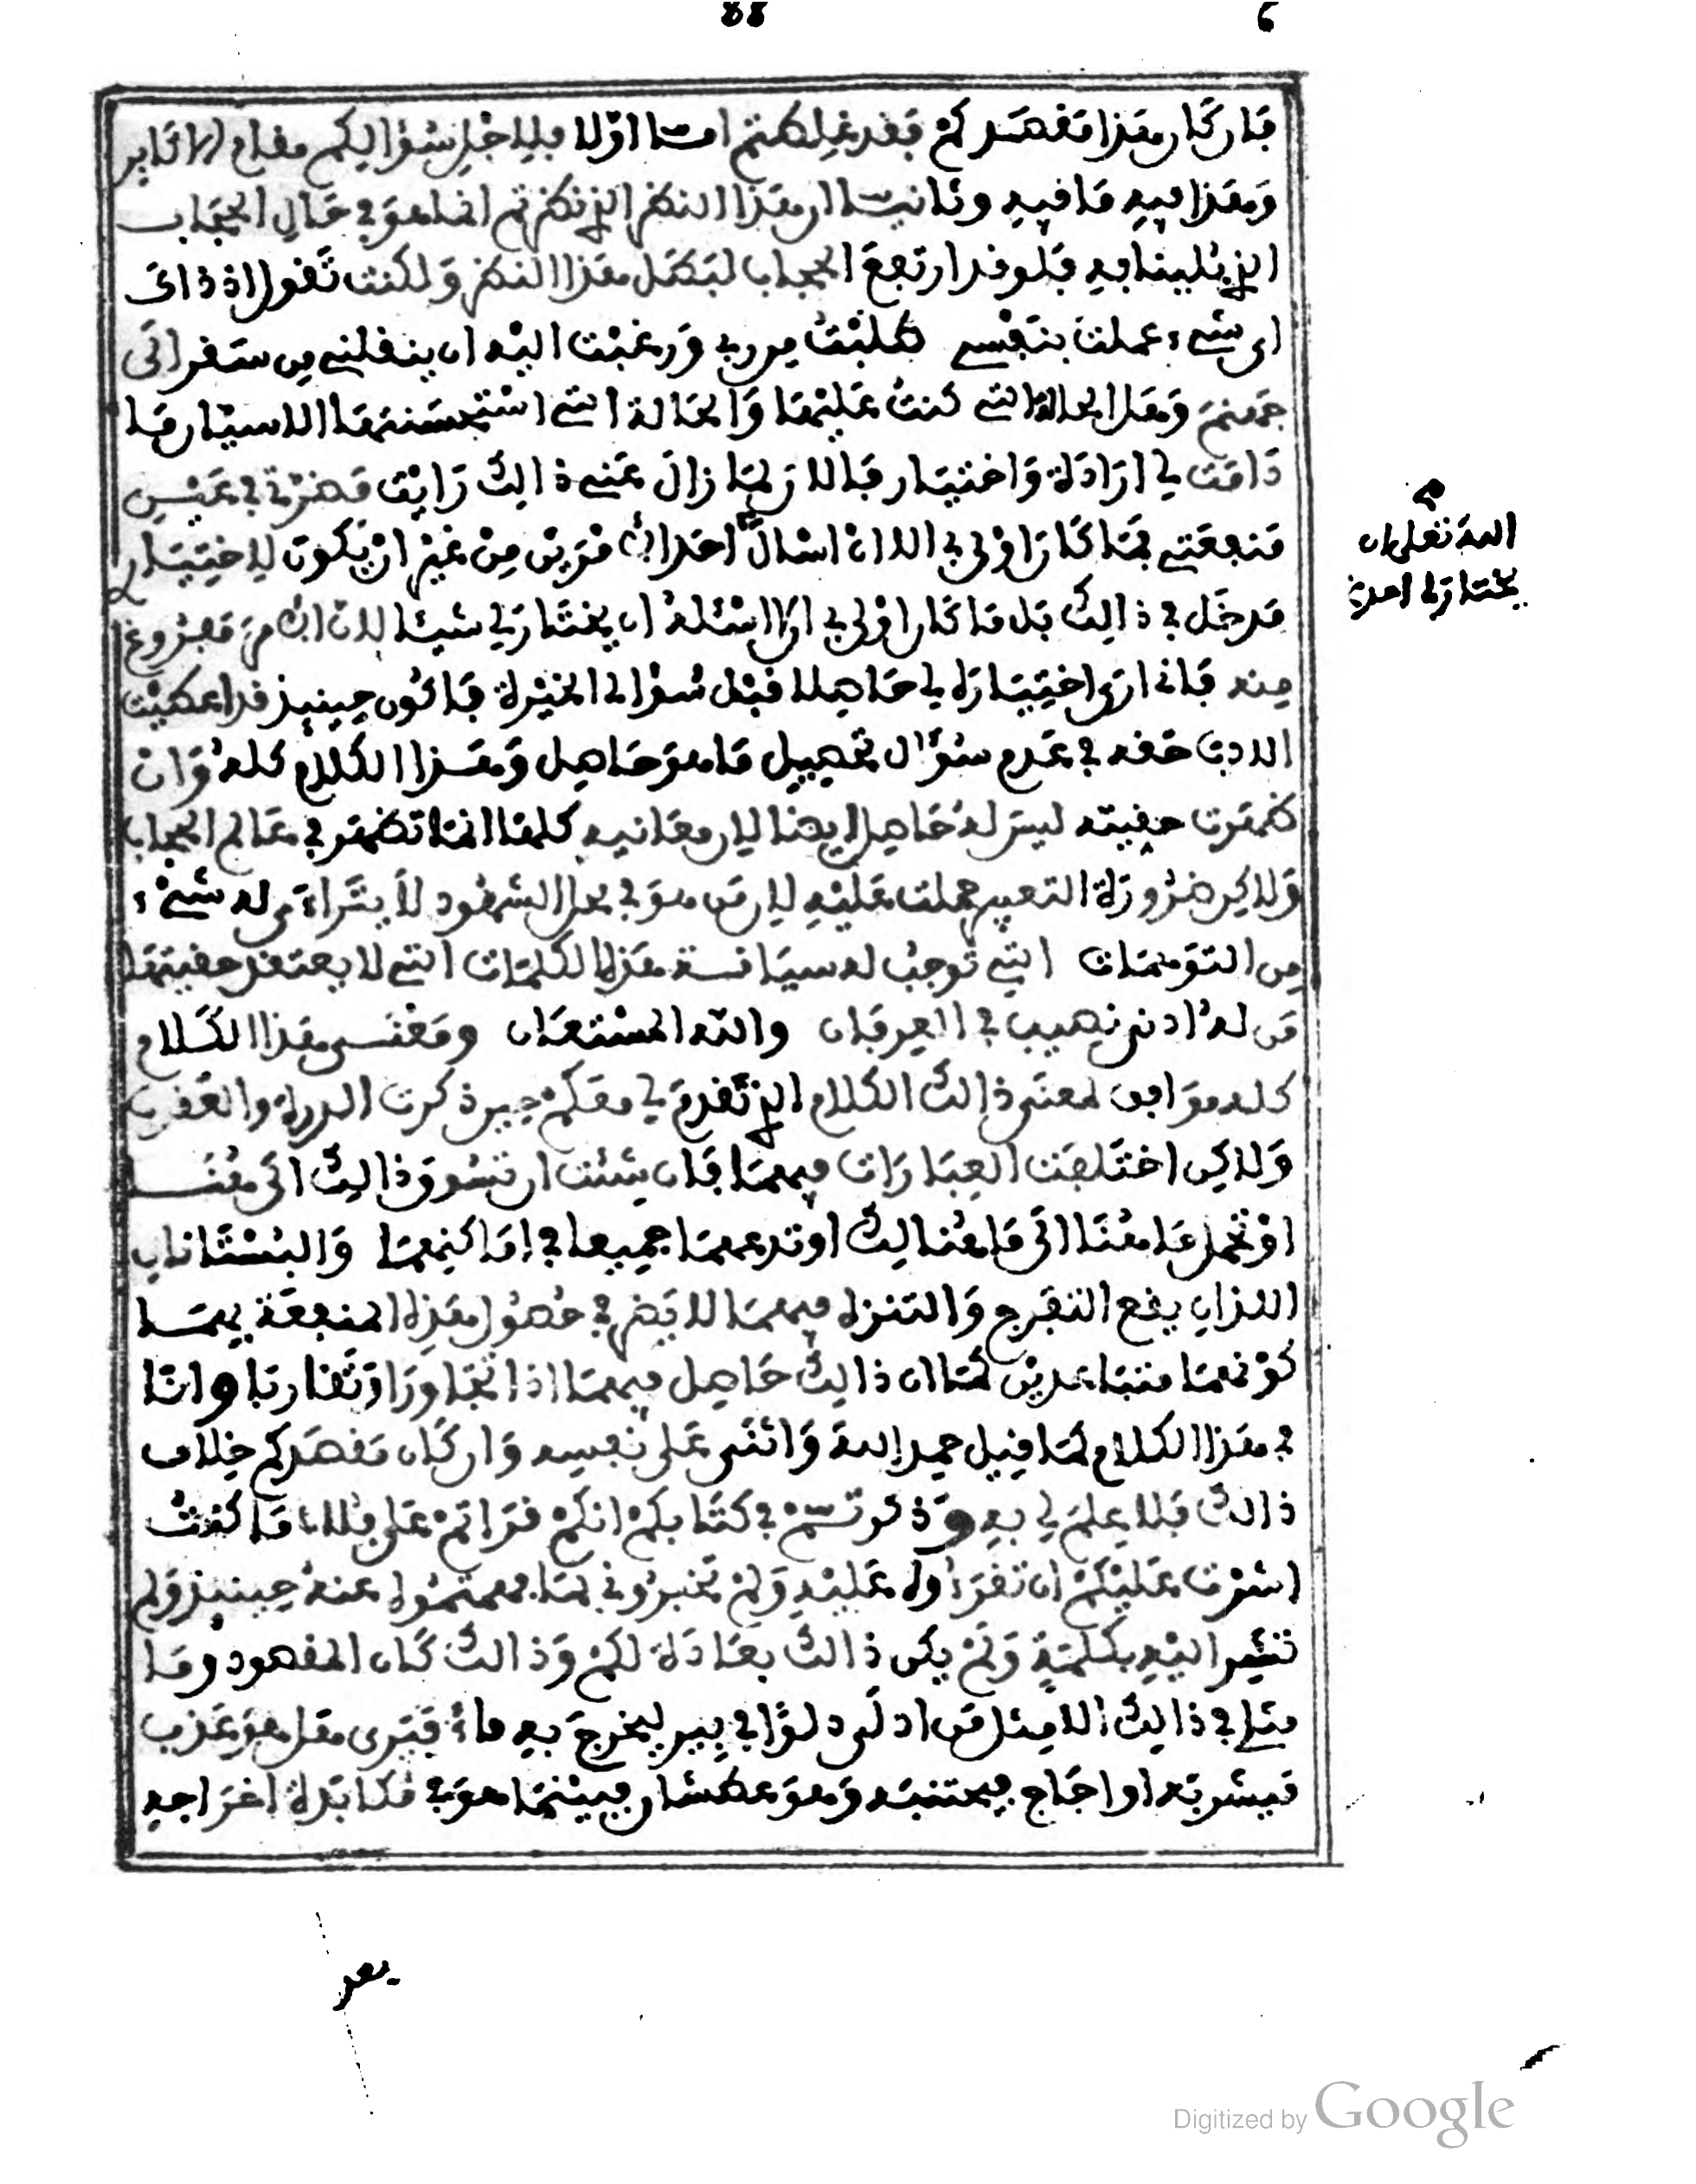 فان كان هذا مقصدكم فقد غلطتم اما اولا فلاجل سؤاليكم مقام الاكابر
وهذا فيه ما فيه وثانيا ان هذا النظر الذي نظرتم انما هو في حال الحجاب
الذي بلينا به فلو قد ارتفع الحجاب لبطل هذا النظر ولكنت تقول اذ ذاك
اي شيء عملت بنفسي طلبت من ربي ورغبت اليه ان ينقلني من سقر الى
جهنم وهل الحالة التي كنت عليها والحالة التي استحسنتها الا سيان ما
دامت لي ارادة واختيار فالان لما زال عني ذالك رايت مضرتي في عين
منفعتي فما كان اولى بي الا ان اسال احدا من غير ان يكون لاختيار
مدخل في ذالك بل ما كان اولى بي الا اسئله ان يختار لي شيئا لان مفروغ
منه فاني ارى اختياره لي حاصلا قبل سؤالي الخيرة فاكون حينئذ قد اعطيت
الادب حقه في عدم سؤال تحصيل ما هو حاصل وهذا الكلام كله وان
ظهرت حقيته ليس له حاصل ايضا لان معانيه كلها انما تظهر في عالم الحجاب
ولاكن ضرورة التعبير حملت عليه لان من هو في محل الشهود لا يتراءى له شيء
من التوهمات التي توجب له سياقة هذه الكلمات التي لا يعتقد حقيتها
من له ادنى نصيب في العرفان والله المستعان ومعنى هذا الكلام
كله موافق لمعنى ذالك الكلام الذي تقدم لي معكم حين ذكرت الدرة والعقرب
ولاكن اختلفت العبارات فيهما فان شئت ان تسوق ذالك الى هنا
او تحمل ما هنا الى ما هنالك او تدعهما جميعا في اماكنهما والبستانان
اللذان يقع التفرج والتنزه فيهما لا يضر في حصول هذه المنفعة بهما
كونهما متباعدين كما ان ذالك حاصل فيهما اذا تجاورا وتقاربا وانا
في هذا الكلام كما قيل حمد الله واثنى على نفسه وان كان مقصدكم خلاف
ذالك فلا علم لي به وذكرتم في كتابكم انكم قراتم على فلان ما كنت
اشرت عليكم ان تقرأوه عليه ولم تخبروني بما فهمتموه عنه حينئذ ولم
تشير اليه بكلمة ولم يكن ذالك بعادة لكم وذالك كان المقصود وما
مثلي في ذالك الا مثل من ادلى دلوا في بير ليخرج به ماء فيرى هل هو عذب
فيشربه او اجاج فيجتنبه وهو عطشان فبينما هو في مكابدة اخراجه
الله تعلى ان
يختار لي احدى